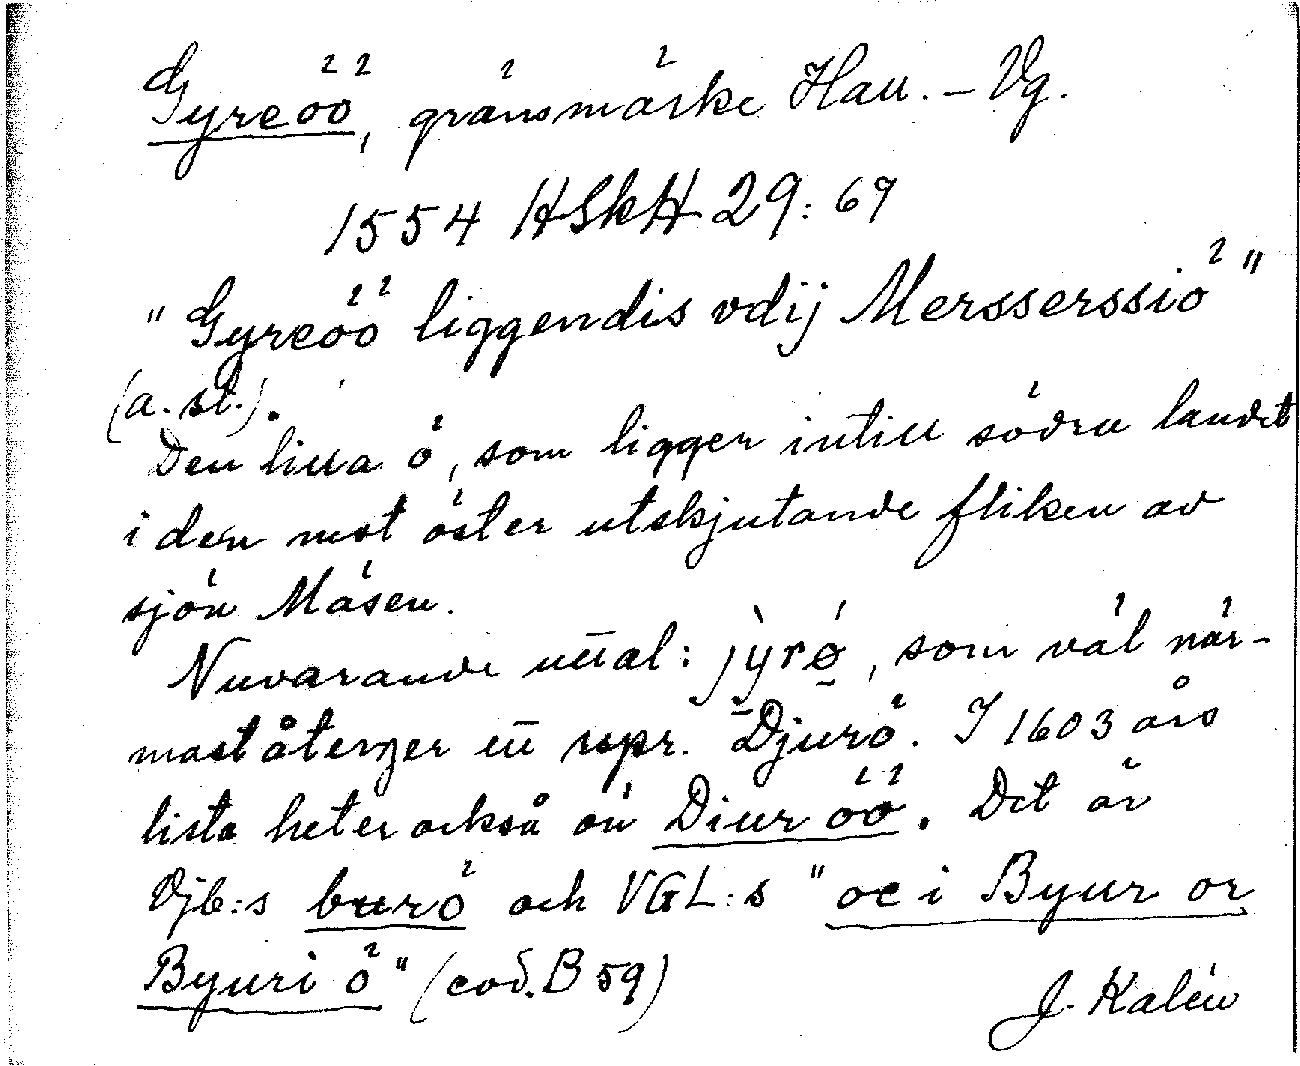 Gyreöö, gränsmärke Hall. – Vg.
1554 HSkH 29: 69
"Gyreöö liggendis vdij Mersserssiö"
(a. st.).
Den lilla ö, som ligger intill södra landet
i den mot öster utskjutande fliken av
sjön Mäsen.
Nuvarande uttal: jỳrǿ, som väl när-
mast återger ett rspr. Djurö. I 1603 års
lista heter också ön Diur öö. Det är
Djb:s burö och VGL:s "oc i Byur or
Byuri ö" (cod. B 59)
J. Kalén